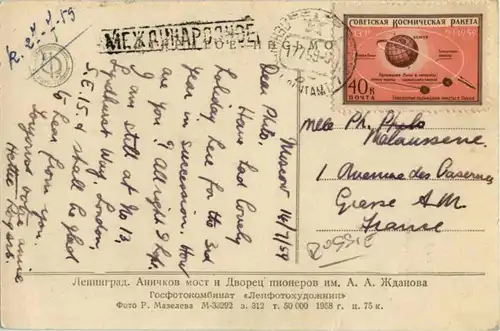 R. 27-7-59
МЕЖДУНАРОДНОЕ
СОВЕТСКАЯ КОСМИЧЕСКАЯ РАКЕТА
2-I-1959
ЗЕМЛЯ
40 К
ПОЧТА
Moscow 16/7/59
Dear Philo,
Have had lovely
holiday here for the 3rd
year in succession. How
are you? All right I hope.
I am still at No 13,
Lyndhurst Way, London
S.E.15. & shall be glad
to hear from you.
Hattie Rogers.
Mlle Ph. Philo
Malaussene
1 Avenue des Casernes
Grasse A.M
France
RUSSIE
Ленинград. Аничков мост и Дворец пионеров им. А. А. Жданова
Госфотокомбинат «Ленфотохудожник»
Фото Р. Мазелева М-33292 з. 312 т. 50 000 1958 г. ц. 75 к.